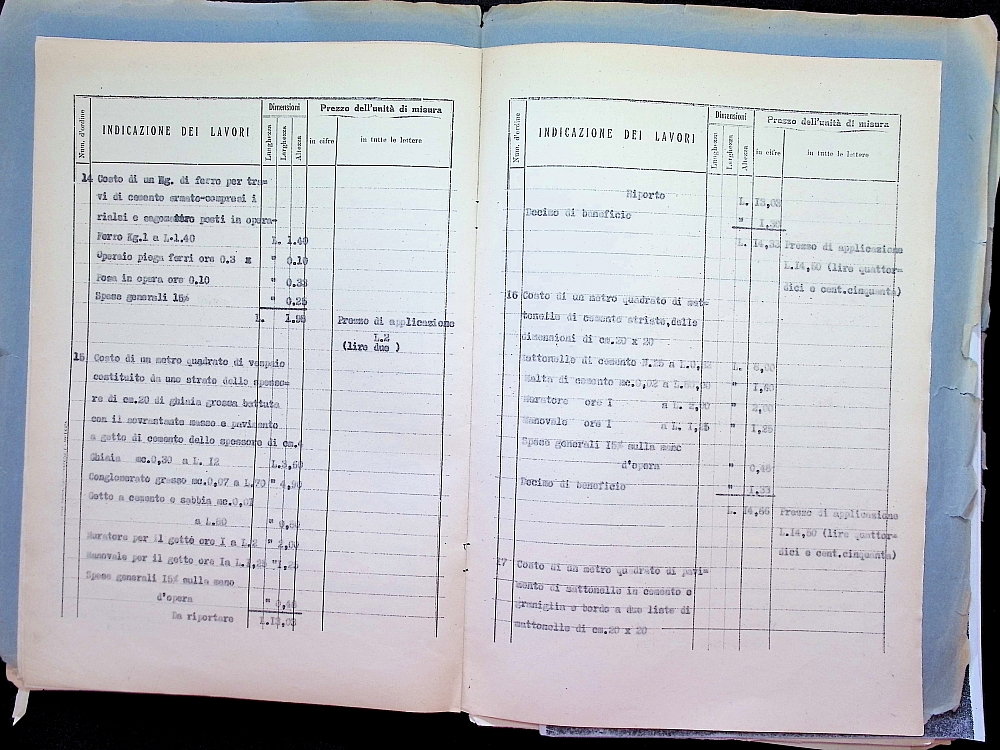 Num. d'ordine
INDICAZIONE DEI LAVORI
Dimensioni
Lunghezza
Larghezza
Altezza
Prezzo dell'unità di misura
in cifre
in tutte le lettere
14 Costo di un Kg. di ferro per tra=
vi di cemento armato-compresi i
rialzi e posti in opera-
Ferro Kg.1 a L.1.40 L. 1.40
Operaio piega ferri ore 0.3 " 0.10
Posa in opera ore 0.10 "
Spese generali 15% " 0.25
L. Prezzo di applicazione
L.2
(lire due )
15 Costo di un metro quadrato di vespaio
costituito da uno strato dello spesso=
re di cm.20 di ghiaia grossa battuta
con il sovrastante masso e pavimento
a getto di cemento dello spessore di cm.4
Ghiaia mc.0,30 a L. I2 L.3,60
Conglomerato grasso mc.0,07 a L.70 " 4,90
Getto a cemento e sabbia mc.0,01
a L. "
Muratore per il getto ore I a L.2 " 2,00
Manovale per il getto ore Ia L.1,25 "1,25
Spese generali I5% sulla mano
d'opera "
Da riportare L.I3,03
Num. d'ordine
INDICAZIONE DEI LAVORI
Dimensioni
Lunghezza
Larghezza
Altezza
Prezzo dell'unità di misura
in cifre
in tutte le lettere
Riporto L. I3,03
Decimo di beneficio " I,30
L. I4,33 Prezzo di applicazione
L.I4,50 (lire quattor=
dici e cent.cinquanta)
16 Costo di un metro quadrato di mat=
tonelle di cemento striate,delle
dimensioni di cm.20 x 20
Mattonelle di cemento N.25 a L. L. 6,00
Malta di cemento mc.0,02 a L.80,00 " I,60
Muratore ore I a L. 2,00 " 2,00
Manovale ore I a L. I,25 " I,25
Spese generali I5% sulla mano
d'opera "
Decimo di beneficio " I,33
L. I4,66 Prezzo di applicazione
L.I4,50 (lire quattor=
dici e cent.cinquanta)
17 Costo di un metro quadrato di pavi=
mento di mattonelle in cemento e
graniglia e bordo a due liste di
mattonelle di cm.20 x 20